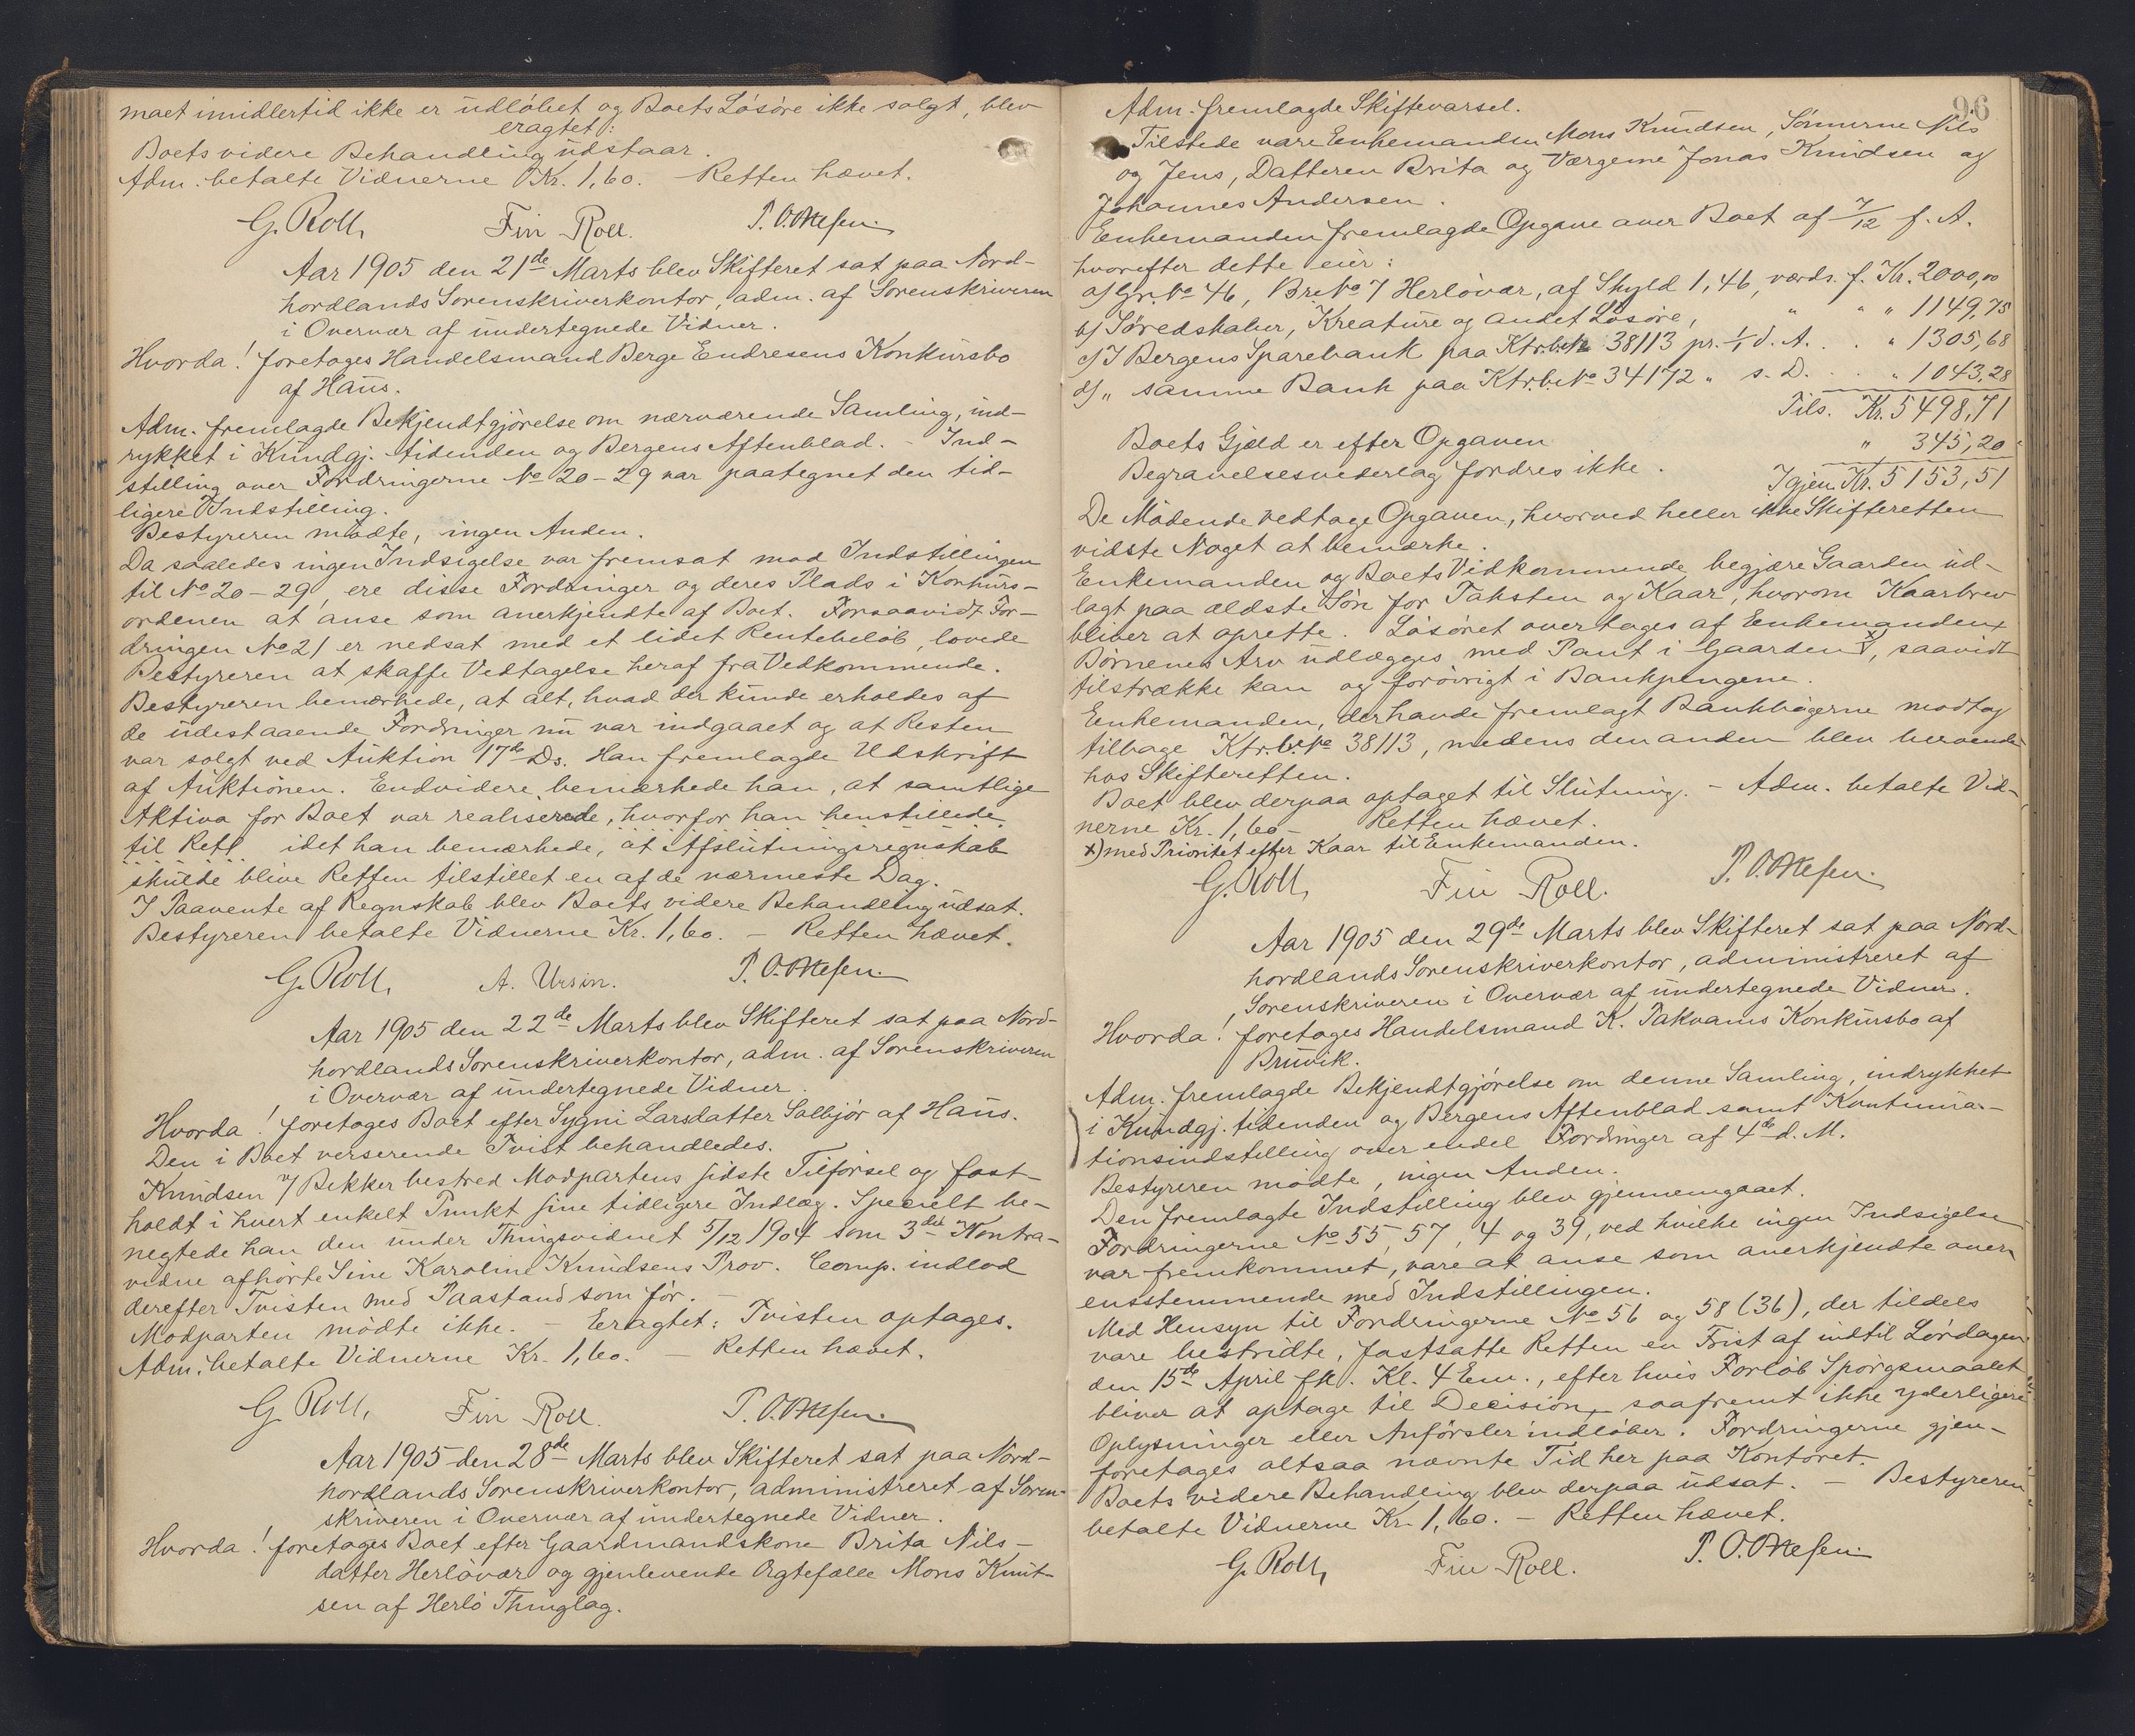 maet imidlertid ikke er udløbet og Boets Løsøre ikke solgt, blev
eragtet:
Boets videre Behandling udstaar.
Adm. betalte Vidnerne Kr. 1,60. — Retten hævet.
G. Roll, Fin Roll. P. O.
Aar 1905 den 21de Marts blev Skifteret sat paa Nord-
hordlands Sorenskriverkontor, adm. af Sorenskriveren
i Overvær af undertegnede Vidner.
Hvorda! foretoges Handelsmand Berge Endresens Konkursbo
af Haus.
Adm. fremlagde Bekjendtgjørelse om nærværende Samling, ind-
rykket i Kundgj. tidenden og Bergens Aftenblad. - Ind-
stilling over Fordringerne No 20-29 var paategnet den tid-
ligere Indstilling.
Bestyreren mødte, ingen Anden.
Da saaledes ingen Indsigelse var fremsat mod Indstillingen
til No 20-29, ere disse Fordringer og deres Plads i Konkurs-
ordenen at anse som anerkjendte af Boet. Forsaavidt For-
dringen No 21 er nedsat med et lidet Rentebeløb, lovede
Bestyreren at skaffe Vedtagelse heraf fra Vedkommende.
Bestyreren bemærkede, at alt, hvad der kunde erholdes af
de udestaaende Fordringer nu var indgaaet og at Resten
var solgt ved Auktion 17de Ds. Han fremlagde Udskrift
af Auktionen. Endvidere bemærkede han, at samtlige
Aktiva for Boet var realiserede, hvorfor han henstillede
til Rett idet han bemærkede, at Afslutningsregnskab
skulde blive Retten tilstillet en af de nærmeste Dag.
I Paavente af Regnskab blev Boets videre Behandling udsat.
Bestyreren betalte Vidnerne Kr. 1,60. — Retten hævet.
G. Roll, A. Ursin. P. O.
Aar 1905 den 22de Marts blev Skifteret sat paa Nord-
hordlands Sorenskriverkontor, adm. af Sorenskriveren
i Overvær af undertegnede Vidner.
Hvorda! foretoges Boet efter Sygni Larsdatter Solbjør af Haus.
Den i Boet verserende Tvist behandledes.
Knudsen v/ Bekker bestred Modpartens sidste Tilførsel og fast-
holdt i hvert enkelt Punkt sine tidligere Indlæg. Specielt be-
negtede han den under Thingsvidnet 5/12 1904 som 3die Kontra-
vidne afhørte Sine Karoline Knudsens Prov. Comp. indlod
derefter Tvisten med Paastand som før. —
Modparten mødte ikke. — Eragtet: Tvisten optages.
Adm. betalte Vidnerne Kr. 1,60. — Retten hævet.
G. Roll, Fin Roll. P. O.
Aar 1905 den 28de Marts blev Skifteret sat paa Nord-
hordlands Sorenskriverkontor, administreret af Soren-
skriveren i Overvær af undertegnede Vidner.
Hvorda! foretoges Boet efter Gaardmandskone Brita Nils-
datter Herløvær og gjenlevende Ægtefælle Mons Knut-
sen af Herlø Thinglag.
96
Adm. fremlagde Skiftevarsel.
Tilstede vare Enkemanden Mons Knudsen, Sønnerne Nils
og Jens, Datteren Brita og Værgerne Jonas Knudsen og
Johannes Andersen.
Enkemanden fremlagde Opgave over Boet af 7/12 f. A.
hvorefter dette eier:
a) Gr. No 46, Br. No 7 Herløvær, af Skyld 1,46, værds. f. Kr. 2000,00
b) Søredskaber, Kreature og andet Løsøre, " " " 1149,75
c) I Bergens Sparebank paa Ktr.b. No 38113 pr. 1/1 d. A. . . " 1305,68
d) " samme Bank paa Ktr.b. No 34172 " s. D. . . " 1043,28
Tils. Kr. 5498,71
Boets Gjæld er efter Opgaven " 345,20
Begravelsesvederlag fordres ikke. Igjen Kr. 5153,51
De Mødende vedtoge Opgaven, hvorved heller ikke Skifteretten
vidste Noget at bemærke.
Enkemanden og Boets Vidkommende begjære Gaarden ud-
lagt paa ældste Søn for Taksten og Kaar, hvorom Kaarbrev
bliver at oprette. Løsøret overtages af Enkemanden,
Børnenes Arv udlægges med Pant i Gaarden x), saavidt
tilstrække kan og forøvrigt i Bankpengene.
Enkemanden, der havde fremlagt Bankbøgerne modtog
tilbage Ktr.b. No 38113, medens den anden blev beroende
hos Skifteretten.
Boet blev derpaa optaget til Slutning. - Adm. betalte Vid-
nerne Kr. 1,60 - Retten hævet.
x) med Prioritet efter Kaar til Enkemanden.
G. Roll, Fin Roll. P. O.
Aar 1905 den 29de Marts blev Skifteret sat paa Nord-
hordlands Sorenskriverkontor, administreret af
Sorenskriveren i Overvær af undertegnede Vidner.
Hvorda! foretoges Handelsmand K. Takvams Konkursbo af
Bruvik.
Adm. fremlagde Bekjendtgjørelse om denne Samling, indrykket
i Kundgj. tidenden og Bergens Aftenblad samt Kontinua-
tionsindstilling over endel Fordringer af 4de d. M.
Bestyreren mødte, ingen Anden.
Den fremlagte Indstilling blev gjennemgaaet.
Fordringerne No 55, 57, 4 og 39, ved hvilke ingen Indsigelse
var fremkommet, vare at anse som anerkjendte over-
ensstemmende med Indstillingen.
Med Hensyn til Fordringerne No 56 og 58 (36), der tildels
vare bestridte, fastsatte Retten en Frist af indtil Lørdagen
den 15de April fk. Kl. 4 Em., efter hvis Forløb Spørgsmaalet
bliver at optage til Decision, saafremt ikke yderligere
Oplysninger eller Anførsler indløber. Fordringerne gjen-
foretages altsaa nævnte Tid her paa Kontoret.
Boets videre Behandling blev derpaa udsat. — Bestyreren
betalte Vidnerne Kr. 1,60. — Retten hævet.
G. Roll, Fin Roll. P. O.